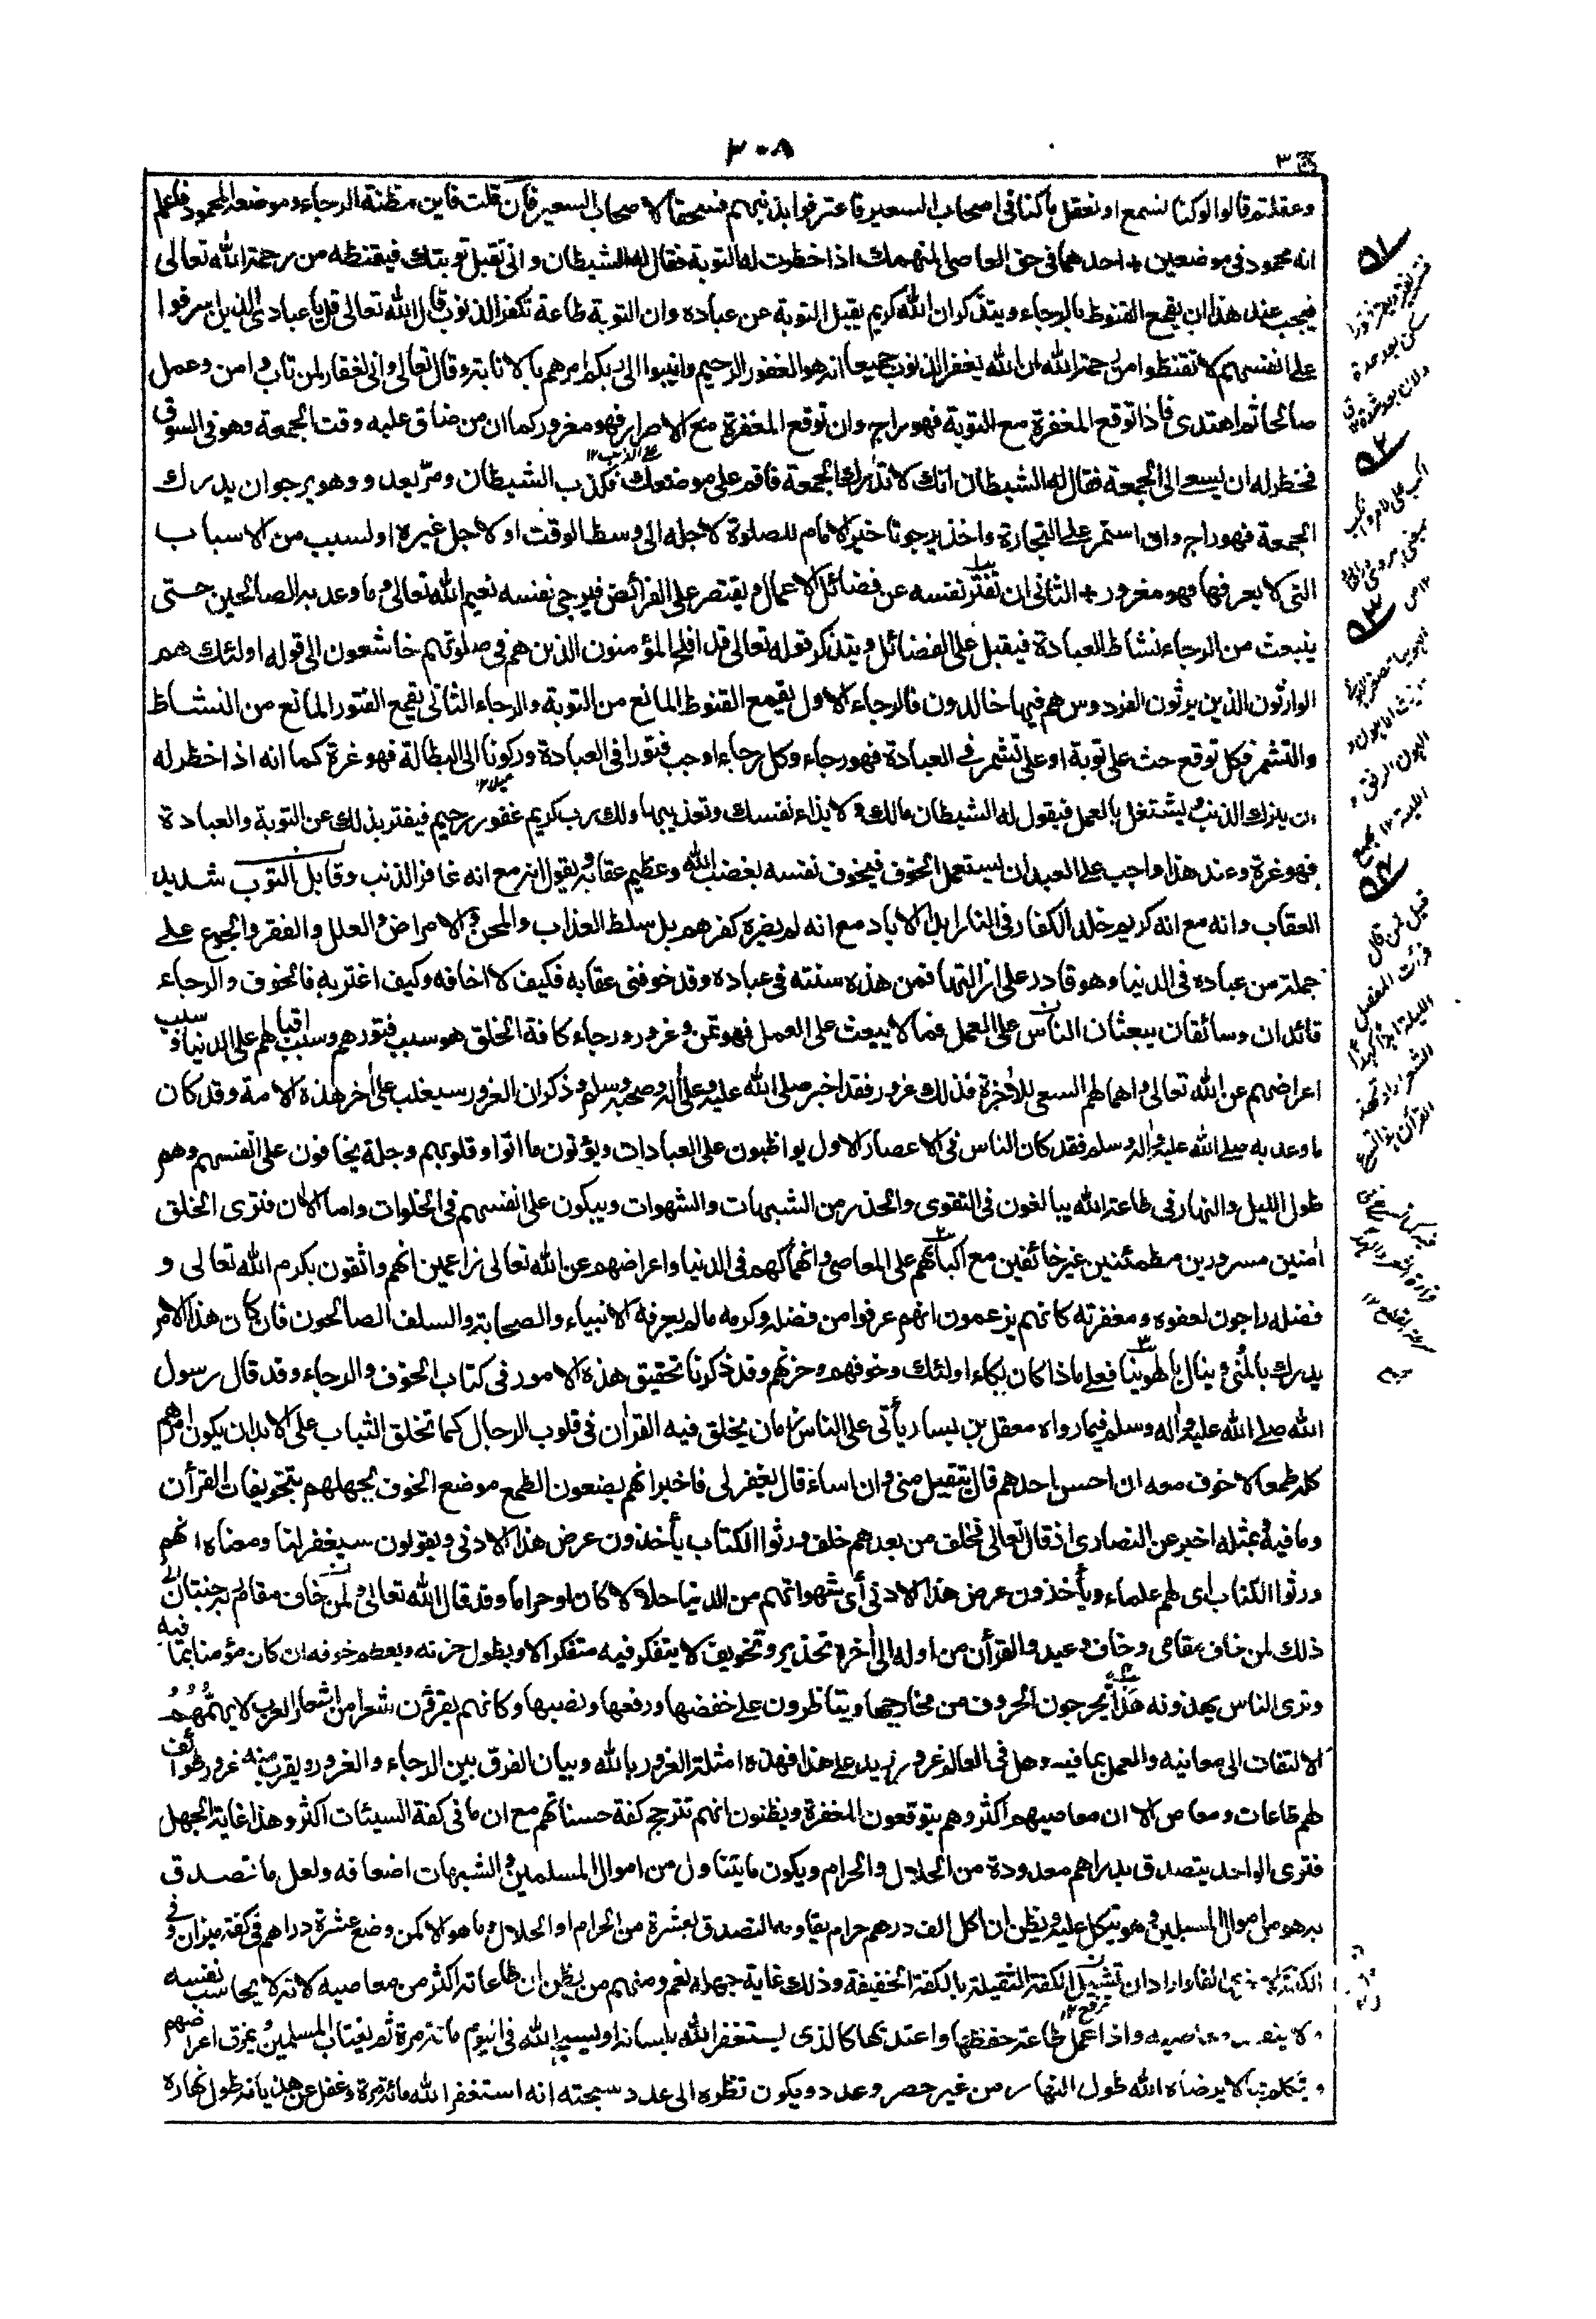 ٣٠٨
ج ٣
وعقلتم قالوا لو كنا نسمع او نعقل ما كنا فى اصحاب السعير فاعترفوا بذنبهم فسحقا لاصحاب السعير فان قلت فاين مظنة الرجاء وموضعه المحمود فاعلم
انه محمود فى موضعين + احدهما فى حق العاصى المنهمك اذا خطرت له التوبة فقال له الشيطان وانى تقبل توبتك فيقنطه من رحمة الله تعالى
فيجب عند هذا ان يقمع القنوط بالرجاء ويتذكر ان الله كريم يقبل التوبة عن عباده وان التوبة طاعة تكفر الذنوب قال الله تعالى قل يا عبادى الذين اسرفوا
على انفسهم لا تقنطوا من رحمة الله ان الله يغفر الذنوب جميعا انه هو الغفور الرحيم وانيبوا الى ربكم امرهم بالانابة وقال تعالى وانى لغفار لمن تاب وامن وعمل
صالحا ثم اهتدى فاذا توقع المغفرة مع التوبة فهو راج وان توقع المغفرة مع الاصرار فهو مغرور كما ان من ضاق عليه وقت الجمعة وهو فى السوق
فخطر له ان يسعى الى الجمعة فقال له الشيطان انك لا تدرك الجمعة فاقم على موضعك فكذب الشيطان ومر يعدو وهو يرجو ان يدرك
الجمعة فهو راج وان استمر على التجارة واخذ يرجو تاخير الامام للصلوة لاجله الى وسط الوقت او لاجل غيره او لسبب من الاسباب
التى لا يعرفها فهو مغرور + الثانى ان تفتر نفسه عن فضائل الاعمال ويقتصر على الفرائض فيرجى نفسه نعيم الله تعالى وما وعد به الصالحين حتى
ينبعث من الرجاء نشاط العبادة فيقبل على الفضائل ويتذكر قوله تعالى قد افلح المؤمنون الذين هم فى صلوتهم خاشعون الى قوله اولئك هم
الوارثون الذين يرثون الفردوس هم فيها خالدون فالرجاء الاول يقمع القنوط المانع من التوبة والرجاء الثانى يقمع الفتور المانع من النشاط
والتشمر فكل توقع حث على توبة او على تشمر فى العبادة فهو رجاء وكل رجاء اوجب فتورا فى العبادة وركونا الى البطالة فهو غرة كما انه اذا خطر له
ان يترك الذنب ويشتغل بالعمل فيقول له الشيطان مالك ولايذاء نفسك وتعذيبها ولك رب كريم غفور رحيم فيفتر بذلك عن التوبة والعبادة
فهو غرة وعند هذا واجب على العبد ان يستعمل الخوف فيخوف نفسه بغضب الله وعظيم عقابه ويقول انه مع انه غافر الذنب وقابل التوب شديد
العقاب وانه مع انه كريم خلد الكفار فى النار ابد الاباد مع انه لم يضره كفرهم بل سلط العذاب والمحن والامراض والعلل والفقر والجوع على
جملة من عباده فى الدنيا وهو قادر على ازالتها فمن هذه سنته فى عباده وقد خوفنى عقابه فكيف لا اخافه وكيف اغتر به فالخوف والرجاء
قائدان وسائقان يبعثان الناس على العمل فما لا يبعث على العمل فهو تمن وغرور ورجاء كافة الخلق هو سبب فتورهم وسبب اقبالهم على الدنيا وسبب
اعراضهم عن الله تعالى واهمالهم السعى للآخرة فذلك غرور فقد اخبر صلى الله عليه وعلى اله وصحبه وسلم وذكر ان الغرور سيغلب على اخر هذه الامة وقد كان
ما وعد به صلى الله عليه واله وسلم فقد كان الناس فى الاعصار الاول يواظبون على العبادات ويؤتون ما اتوا وقلوبهم وجلة يخافون على انفسهم وهم
طول الليل والنهار فى طاعة الله يبالغون فى التقوى والحذر من الشبهات والشهوات ويبكون على انفسهم فى الخلوات واما الان فترى الخلق
امنين مسرورين مطمئنين غير خائفين مع اكبابهم على المعاصى وانهماكهم فى الدنيا واعراضهم عن الله تعالى زاعمين انهم واثقون بكرم الله تعالى و
فضله راجون لعفوه ومغفرته كانهم يزعمون انهم عرفوا من فضله وكرمه ما لم يعرفه الانبياء والصحابة والسلف الصالحون فان كان هذا الامر
يدرك بالمنى وينال بالهوينا فعلى ماذا كان بكاء اولئك وخوفهم وحزنهم وقد ذكرنا تحقيق هذه الامور فى كتاب الخوف والرجاء وقد قال رسول
الله صلى الله عليه واله وسلم فيما رواه معقل بن يسار يأتى على الناس زمان يخلق فيه القرآن فى قلوب الرجال كما تخلق الثياب على الابدان يكون امرهم
كله طمعا لا خوف معه ان احسن احدهم قال يتقبل منى وان اساء قال يغفر لى فاخبر انهم يضعون الطمع موضع الخوف لجهلهم بتخويفات القرآن
وما فيه وبمثله اخبر عن النصارى اذ قال تعالى فخلف من بعدهم خلف ورثوا الكتاب يأخذون عرض هذا الادنى ويقولون سيغفر لنا ومعناه انهم
ورثوا الكتاب اى لهم علماء ويأخذون عرض هذا الادنى أى شهواتهم من الدنيا حلالا كان او حراما وقد قال الله تعالى ولمن خاف مقام ربه جنتان
ذلك لمن خاف مقامى وخاف وعيد والقرأن من اوله الى أخره تحذير وتخويف لا يتفكر فيه متفكر الا ويطول حزنه ويعظم خوفه ان كان مؤمنا بما فيه
وترى الناس يهذونه هذا يخرجون الحروف من مخارجها ويتناظرون على خفضها ورفعها ونصبها وكانهم يقرؤن شعرا من اشعار العرب لا يهمهم
الالتفات الى معانيه والعمل بما فيه وهل فى العالم غرور يزيد على هذا فهذه امثلة الغرور بالله وبيان الفرق بين الرجاء والغرور ويقرب منه غرور طوائف
لهم طاعات ومعاص الا ان معاصيهم اكثر وهم يتوقعون المغفرة ويظنون انهم تترجح كفة حسناتهم مع ان ما فى كفة السيئات اكثر وهذا غاية الجهل
فترى الواحد يتصدق بدراهم معدودة من الحلال والحرام ويكون ما يتناول من اموال المسلمين والشبهات اضعافه ولعل ما تصدق
به هو من اموال المسلمين وهو يتكل عليه ويظن ان اكل الف درهم حرام يقاومه التصدق بعشرة من الحرام او الحلال وما هو الا كمن وضع عشرة دراهم فى كفة ميزان وفى
الكفة الاخرى الفا واراد ان تشيل الكفة الثقيلة بالكفة الخفيفة وذلك غاية جهله نعم ومنهم من يظن ان طاعاته اكثر من معاصيه لانه لا يحاسب نفسه
ولا يتفقد معاصيه واذا عمل طاعة حفظها واعتد بها كالذى يستغفر الله بلسانه او يسبح الله فى اليوم مائة مرة ثم يغتاب المسلمين ويمزق اعراضهم
ويتكلم بما لا يرضاه الله طول النهار من غير حصر وعدد ويكون نظره الى عدد سبحته انه استغفر الله مائة مرة وغفل عن هذيانه طول نهاره